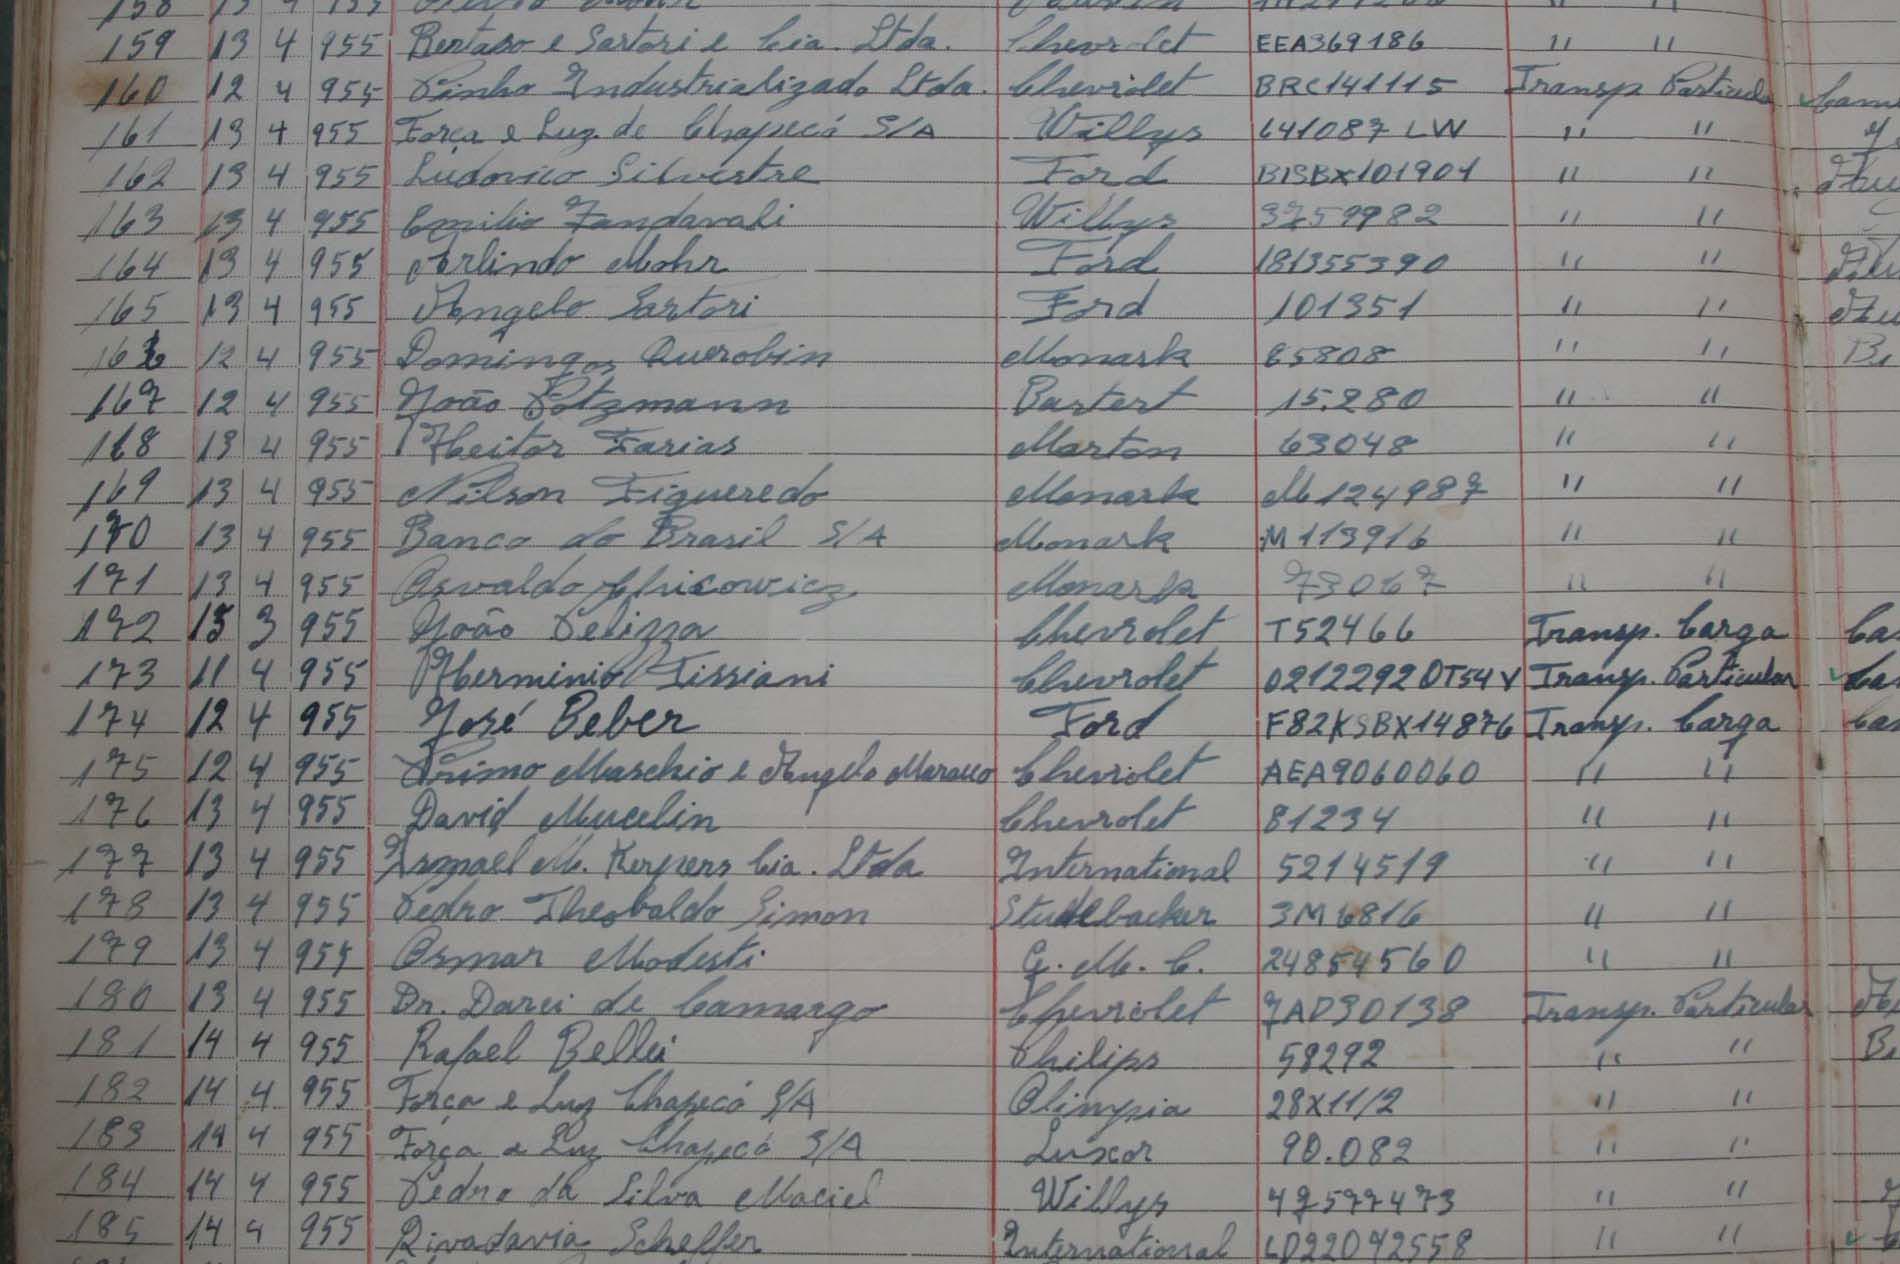 159 13 4 955 Bertaso e Sartori e Cia. Ltda. Chevrolet EEA369186 " "
160 12 4 955 Pinho Industrializado Ltda. Chevrolet BRC141115 Transp Particular
161 13 4 955 Força e Luz de Chapecó S/A Willys 641087 LW " "
162 13 4 955 Ludovico Silvestre Ford B13BX101901 " "
163 13 4 955 Emilio Zandavali Willys 3759982 " "
164 13 4 955 Arlindo Mohr Ford 181355390 " "
165 13 4 955 Angelo Sartori Ford 101351 " "
166 12 4 955 Domingos Querobin Monark 65808 " "
167 12 4 955 João Potzmann Bartert 15.280 " "
168 13 4 955 Heitor Farias Marton 63048 " "
169 13 4 955 Nilson Figueredo Monark M124987 " "
170 13 4 955 Banco do Brasil S/A Monark M113916 " "
171 13 4 955 Osvaldo Monark 73067 " "
172 15 3 955 João Pelizza Chevrolet T52466 Transp. Carga
173 11 4 955 Herminio Tissiani Chevrolet 02122920T54V Transp. Particular
174 12 4 955 José Beber Ford F82KSBX14876 Transp. Carga
175 12 4 955 Primo Maschio e Angelo Chevrolet AEA9060060 " "
176 13 4 955 David Mucelin Chevrolet 81234 " "
177 13 4 955 Ismael M. Kerpers Cia. Ltda International 5214519 " "
178 13 4 955 Pedro Theobaldo Simon Studebacker 3M6816 " "
179 13 4 955 Osmar Modesti G. M. C. 24854560 " "
180 13 4 955 Dr. Darci de Camargo Chevrolet 7AD30138 Transp. Particular
181 14 4 955 Rafael Bellei Philips 58292 " "
182 14 4 955 Força e Luz Chapecó S/A Olimpia 28x11/2 " "
183 14 4 955 Força e Luz Chapecó S/A Luxor 90.082 " "
184 14 4 955 Pedro da Silva Maciel Willys 47577473 " "
185 14 4 955 Rivadavia Scheffer International LD22042558 " "